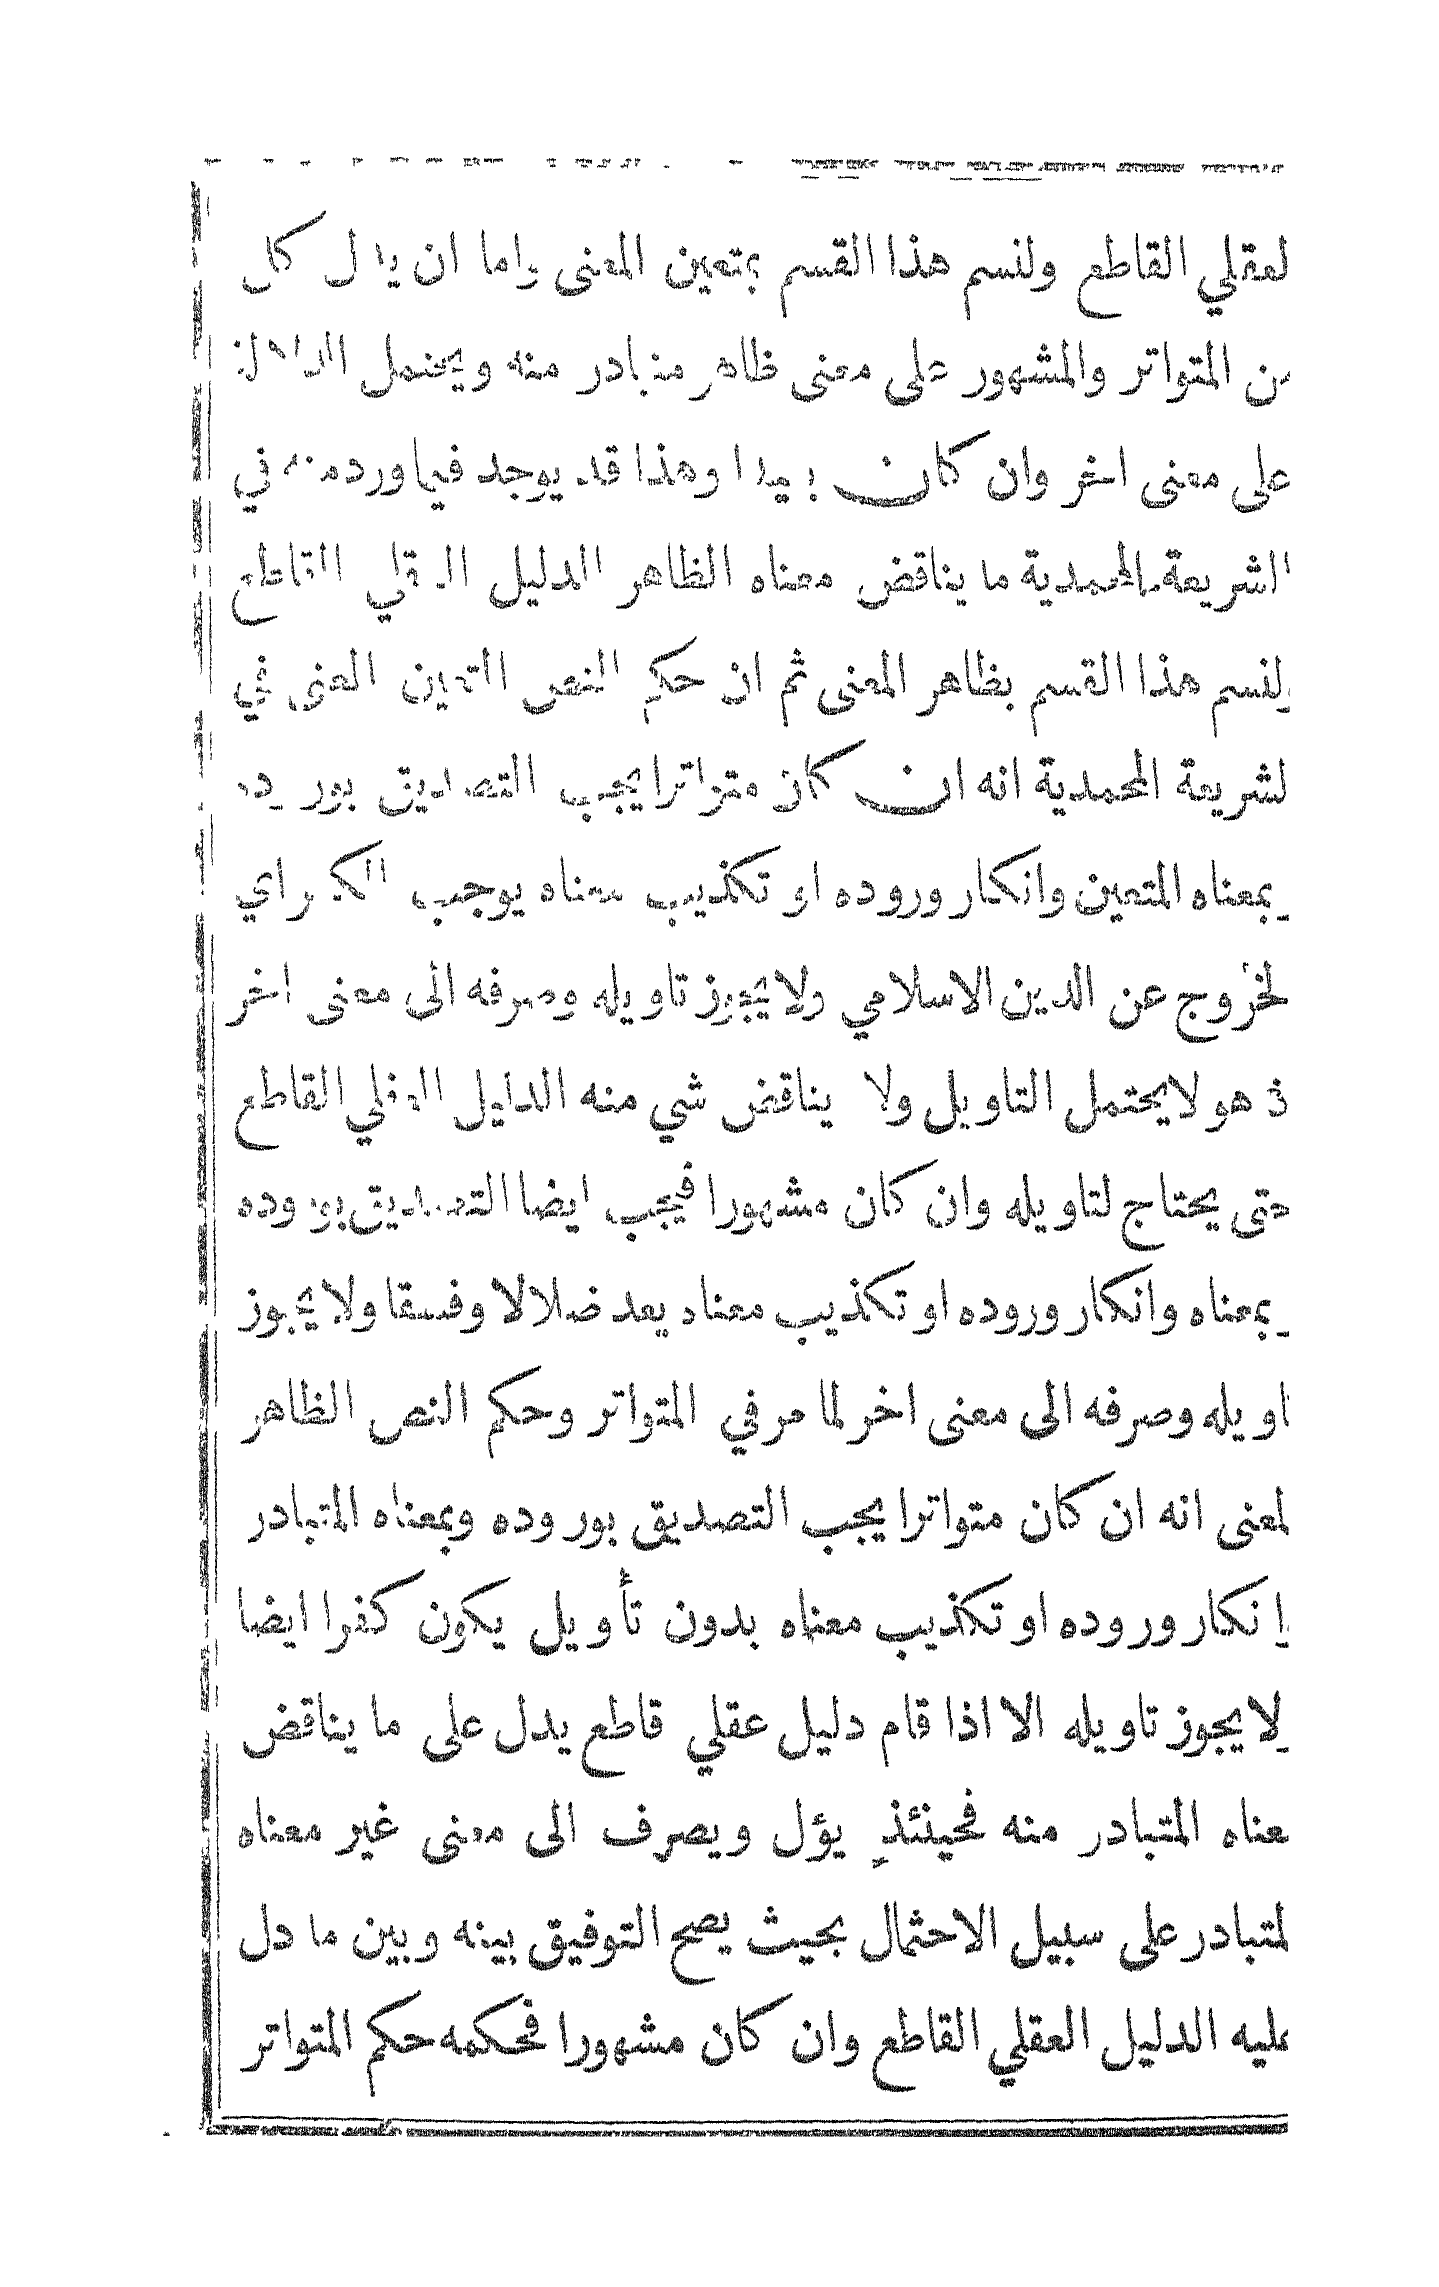 لعقلي القاطع ولنسم هذا القسم بمتعين المعنى واما ان يدل كل
من المتواتر والمشهور على معنى ظاهر متبادر منه ويحتمل الدلالة
على معنى اخر وان كان بعيدا وهذا قد يوجد فيما ورد منه في
الشريعة المحمدية ما يناقض معناه الظاهر الدليل العقلي القاطع
ولنسم هذا القسم بظاهر المعنى ثم ان حكم النص المتعين المعنى في
لشريعة المحمدية انه ان كان متواترا يجب التصديق بوروده
وبمعناه المتعين وانكار وروده او تكذيب معناه يوجب الكفر اي
لخروج عن الدين الاسلامي ولا يجوز تاويله وصرفه الى معنى اخر
ذ هو لا يحتمل التاويل ولا يناقض شي منه الدليل العقلي القاطع
حتى يحتاج لتاويله وان كان مشهورا فيجب ايضا التصديق بوروده
وبمعناه وانكار وروده او تكذيب معناه يعد ضلالا وفسقا ولا يجوز
تاويله وصرفه الى معنى اخر لما مر في المتواتر وحكم النص الظاهر
لمعنى انه ان كان متواترا يجب التصديق بوروده وبمعناه المتبادر
وانكار وروده او تكذيب معناه بدون تأويل يكون كفرا ايضا
ولا يجوز تاويله الا اذا قام دليل عقلي قاطع يدل على ما يناقض
معناه المتبادر منه فحينئذٍ يؤل ويصرف الى معنى غير معناه
لمتبادر على سبيل الاحتمال بحيث يصح التوفيق بينه وبين ما دل
عليه الدليل العقلي القاطع وان كان مشهورا فحكمه حكم المتواتر